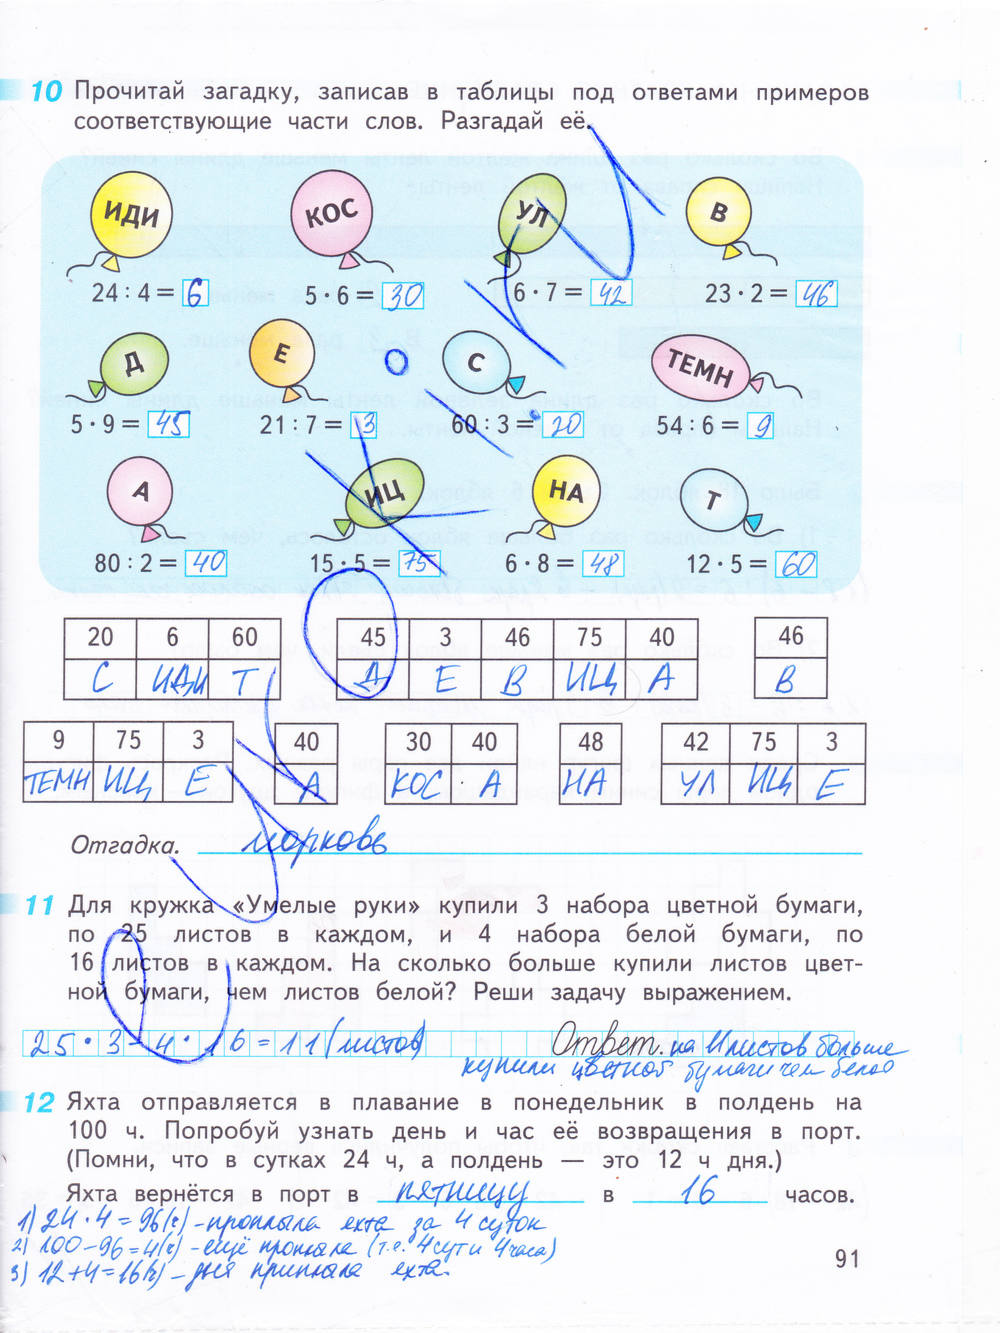 10 Прочитай загадку, записав в таблицы под ответами примеров
соответствующие части слов. Разгадай её.
ИДИ КОС УЛ В
24 : 4 = 6 5 · 6 = 30 6 · 7 = 42 23 · 2 = 46
Д Е С ТЕМН
5 · 9 = 45 21 : 7 = 3 60 : 3 = 20 54 : 6 = 9
А ИЦ НА Т
80 : 2 = 40 15 · 5 = 75 6 · 8 = 48 12 · 5 = 60
20 6 60 45 3 46 75 40 46
С ИДИ Т Д Е В ИЦ А В
9 75 3 40 30 40 48 42 75 3
ТЕМН ИЦ Е А КОС А НА УЛ ИЦ Е
Отгадка. морковь
11 Для кружка «Умелые руки» купили 3 набора цветной бумаги,
по 25 листов в каждом, и 4 набора белой бумаги, по
16 листов в каждом. На сколько больше купили листов цвет-
ной бумаги, чем листов белой? Реши задачу выражением.
25 · 3 - 4 · 16 = 11 (листов) Ответ. на 11 листов больше
купили цветной бумаги чем белой
12 Яхта отправляется в плавание в понедельник в полдень на
100 ч. Попробуй узнать день и час её возвращения в порт.
(Помни, что в сутках 24 ч, а полдень — это 12 ч дня.)
Яхта вернётся в порт в пятницу в 16 часов.
1) 24 · 4 = 96 (ч) - проплыла яхта за 4 суток
2) 100 - 96 = 4 (ч) - ещё проплыла (т.е. 4 сут и 4 часа)
3) 12 + 4 = 16 (ч) - дня приплыла яхта.
91